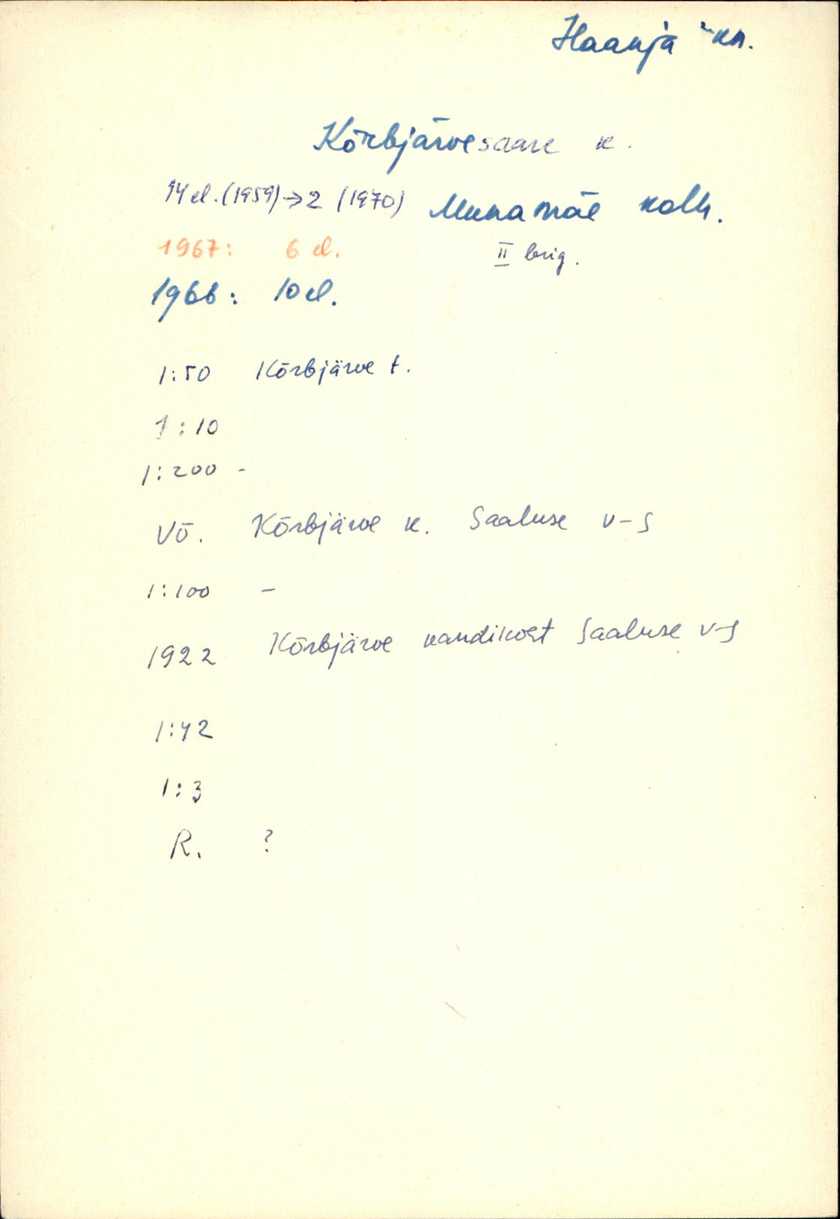 Haanja kn.
Kõrbjärvesaare k.
14 el. (1959) → 2 (1970) Munamäe kolh.
1967: 6 el. II brig.
1966: 10 el.
1:50 Kõrbjärve t.
1:10
1:200 -
Võ. Kõrbjärve k. Saaluse v-s
1:100 -
1922 Kõrbjärve kandikoht Saaluse v-s
1:42
1:3
R. ?